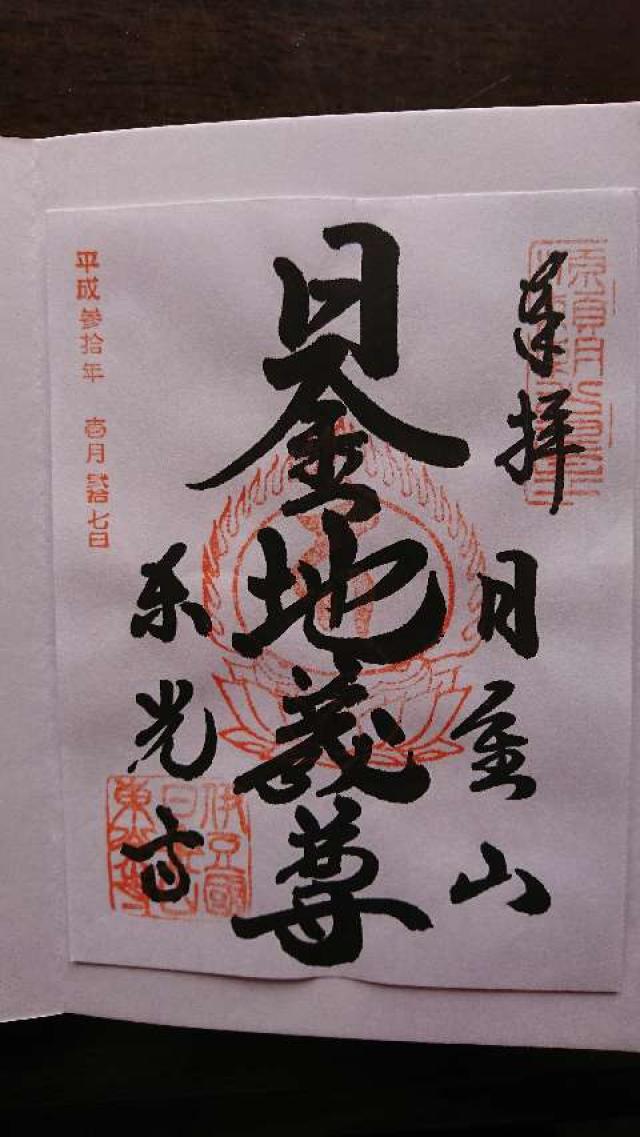 奉拝
日金山
日金地蔵尊
東光寺
平成参拾年 壱月 弐拾七日
伊豆國
日金山
東光寺